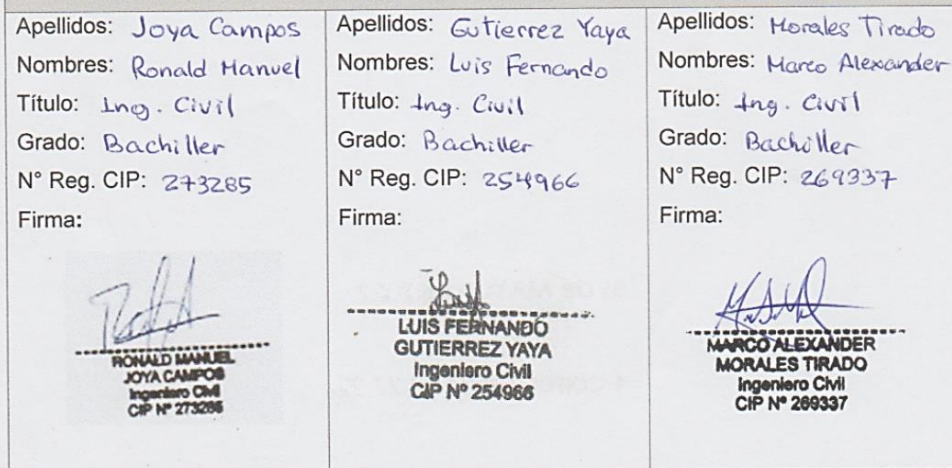 Apellidos: Joya Campos
Nombres: Ronald Manuel
Título: Ing. Civil
Grado: Bachiller
N° Reg. CIP: 273285
Firma:
RONALD MANUEL
JOYA CAMPOS
Ingeniero Civil
CIP N° 273285
Apellidos: Gutierrez Yaya
Nombres: Luis Fernando
Título: Ing. Civil
Grado: Bachiller
N° Reg. CIP: 254966
Firma:
LUIS FERNANDO
GUTIERREZ YAYA
Ingeniero Civil
CIP N° 254966
Apellidos: Morales Tirado
Nombres: Marco Alexander
Título: Ing. Civil
Grado: Bachiller
N° Reg. CIP: 269337
Firma:
MARCO ALEXANDER
MORALES TIRADO
Ingeniero Civil
CIP N° 269337